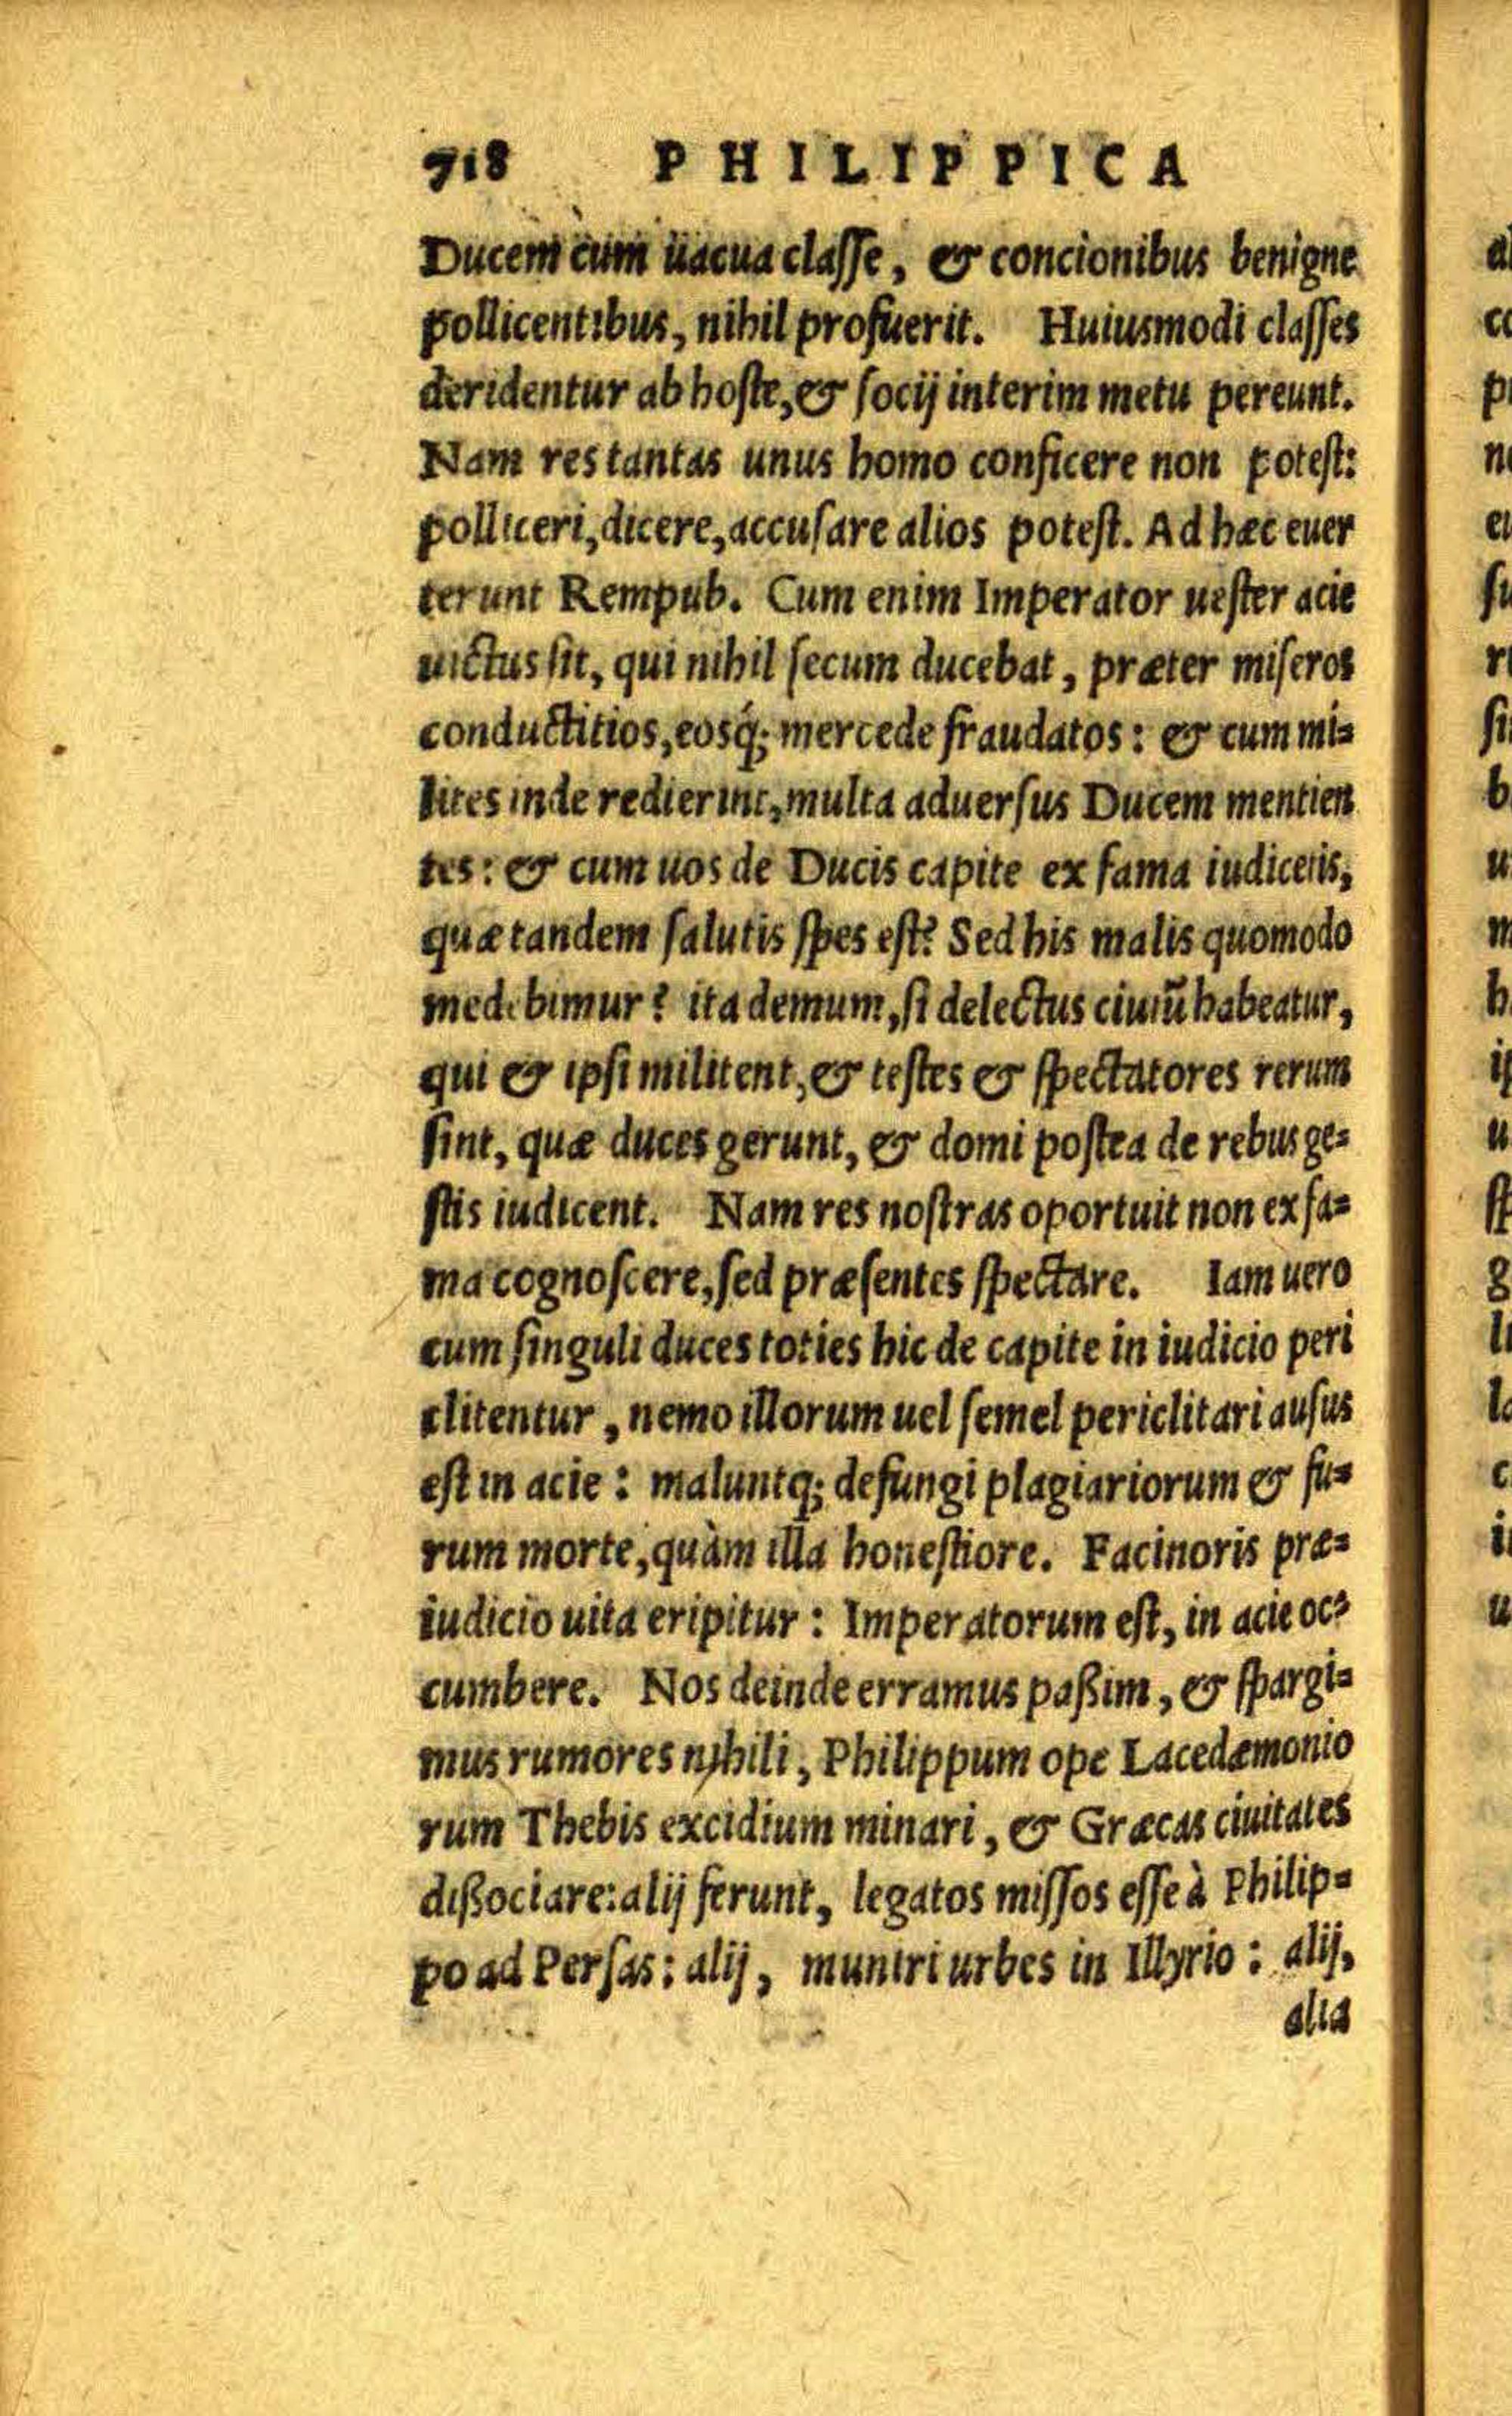 718 PHILIPPICA
Ducem cum uacua claſſe, & concionibus benigne
pollicentibus, nihil profuerit. Huiusmodi claſſes
deridentur ab hoſte, & ſocij interim metu pereunt.
Nam res tantas unus homo conficere non poteſt:
polliceri, dicere, accuſare alios poteſt. Ad hæc euer
terunt Rempub. Cum enim Imperator ueſter acie
uictus ſit, qui nihil ſecum ducebat, præter miſeros
conductitios, eosq́; mercede fraudatos: & cum mi⸗
lites inde redierint, multa aduerſus Ducem mentien
tes: & cum uos de Ducis capite ex fama iudicetis,
quæ tandem ſalutis ſpes eſt? Sed his malis quomodo
medebimur? ita demum, ſi delectus ciuiũ habeatur,
qui & ipſi militent, & teſtes & ſpectatores rerum
ſint, quæ duces gerunt, & domi poſtea de rebus ge⸗
ſtis iudicent. Nam res noſtras oportuit non ex fa⸗
ma cognoſcere, ſed præſentes ſpectare. Iam uero
cum ſinguli duces toties hic de capite in iudicio peri
clitentur, nemo illorum uel ſemel periclitari auſus
eſt in acie: maluntq; defungi plagiariorum & fu⸗
rum morte, quàm illa honeſtiore. Facinoris præ⸗
iudicio uita eripitur: Imperatorum eſt, in acie oc⸗
cumbere. Nos deinde erramus paßim, & ſpargi⸗
mus rumores nihili, Philippum ope Lacedæmonio
rum Thebis excidium minari, & Græcas ciuitates
dißociare: alij ferunt, legatos miſſos eſſe à Philip⸗
po ad Perſas: alij, muniri urbes in Illyrio: alij,
alia